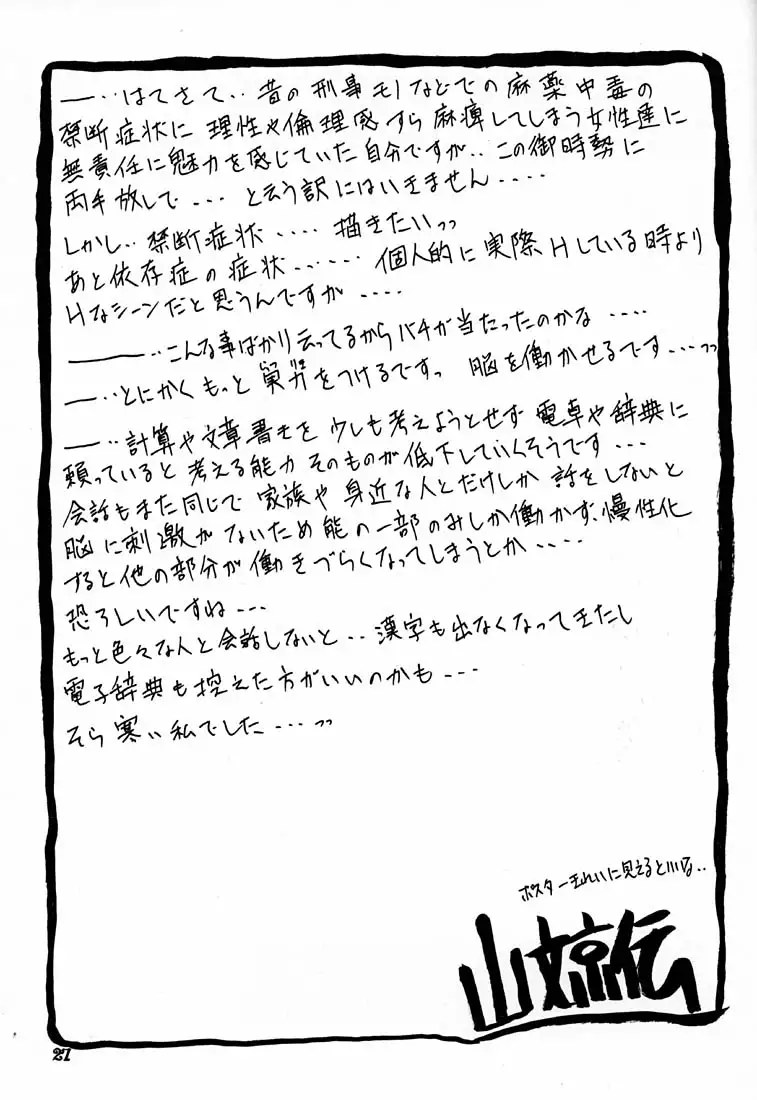 ―‥はてさて‥昔の刑事モノなどでの麻薬中毒の
禁断症状に理性や倫理感すら麻痺してしまう女性達に
無責任に魅力を感じていた自分ですが‥この御時勢に
両手放しで‥‥と云う訳にはいきません‥‥
しかし‥禁断症状‥‥描きたいっっ
あと依存症の症状‥‥‥個人的に実際Hしている時より
Hなシーンだと思うんですが‥‥
――‥こんな事ばかり云ってるからバチが当たったのかな‥‥
―‥とにかくもっと をつけるですっ 脳を働かせるです‥‥っっ
―‥計算や文章書きを少しも考えようとせず電卓や辞典に
頼っていると考える能力そのものが低下していくそうです‥‥
会話もまた同じで家族や身近な人とだけしか話をしないと
脳に刺激がないため能の一部のみしか働かず、慢性化
すると他の部分が働きづらくなってしまうとか‥‥
恐ろしいですね‥‥
もっと色々な人と会話しないと‥漢字も出なくなってきたし
電子辞典も控えた方がいいのかも‥‥
そら寒い私でした‥‥っっ
ポスターきれいに見えるといいな‥
山文京伝
27